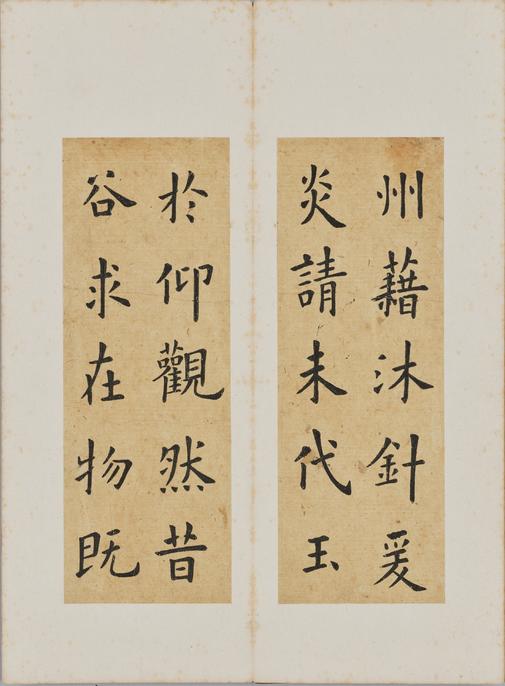 州藉沐針爰
炎請未代玉
於仰觀然昔
谷求在物既